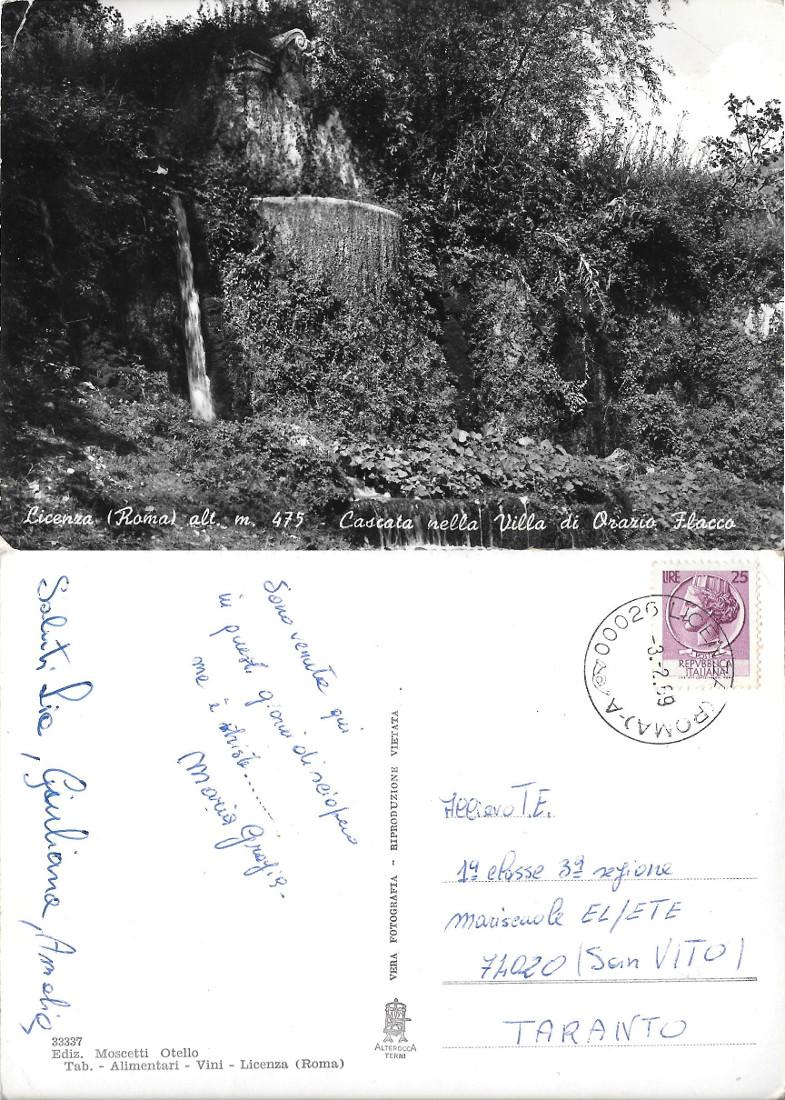 Licenza (Roma) alt. m. 475 - Cascata nella Villa di Orazio Flacco
LIRE 25
POSTE
REPVBBLICA
ITALIANA
00026 LICENZA (ROMA) - A
-3.-2.69
Saluti Lia, Giuliana, Amelia
Sono venuta qui
in questi giorni di sciopero
ma è triste........
Maria Grazia-
VERA FOTOGRAFIA - RIPRODUZIONE VIETATA
Allievo T.E.
1ª classe 3ª sezione
mariscuole EL/ETE
74020 (San VITO)
TARANTO
33337
Ediz. Moscetti Otello
Tab. - Alimentari - Vini - Licenza (Roma)
ALTEROCCA
TERNI